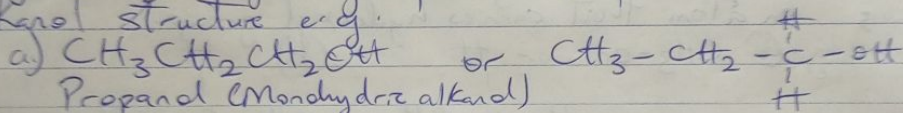 kanol structure e.g.
H
a) CH3CH2CH2OH or CH3-CH2-C-OH
H
Propanol (Monohydric alkanol)